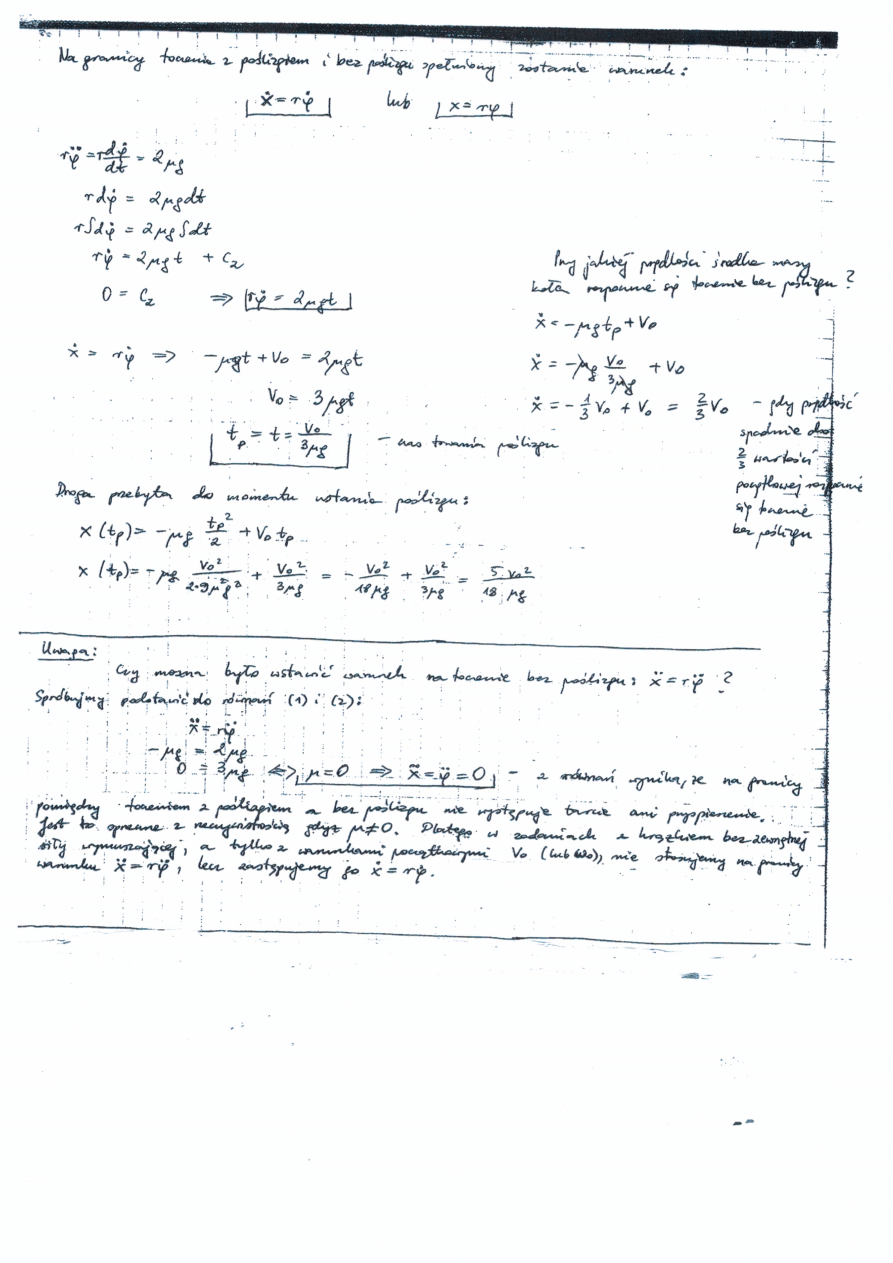 Na granicy toczenia z poślizgiem i bez poślizgu spełniony zostanie warunek:
ẋ = rφ̇ lub x = rφ
rφ̈ = r dφ̇/dt = 2μg
r dφ̇ = 2μg dt
r∫dφ̇ = 2μg ∫dt
rφ̇ = 2μgt + C₂
0 = C₂ ⇒ rφ̇ = 2μgt
ẋ = rφ̇ ⇒ -μgt + V₀ = 2μgt
V₀ = 3μgt
t_p = t = V₀/3μg - czas trwania poślizgu
Przy jakiej prędkości środka masy
koła rozpocznie się toczenie bez poślizgu?
ẋ = -μg t_p + V₀
ẋ = -μg V₀/3μg + V₀
ẋ = -1/3 V₀ + V₀ = 2/3 V₀ - gdy prędkość
spadnie do
2/3 wartości
początkowej rozpocznie
się toczenie
bez poślizgu
Droga przebyta do momentu ustania poślizgu:
x(t_p) = -μg t_p²/2 + V₀ t_p
x(t_p) = -μg V₀²/2·9μ²g² + V₀²/3μg = -V₀²/18μg + V₀²/3μg = 5/18 V₀²/μg
Uwaga:
Czy można było wstawić warunek na toczenie bez poślizgu: ẍ = rφ̈ ?
Spróbujmy podstawić do równań (1) i (2):
ẍ = rφ̈
-μg = 2μg
0 = 3μg ⟺ μ=0 ⇒ ẍ = φ̈ = 0 - z równań wynika, że na granicy
pomiędzy toczeniem z poślizgiem a bez poślizgu nie występuje tarcie ani przyspieszenie.
Jest to sprzeczne z rzeczywistością gdyż μ≠0. Dlatego w zadaniach z krążkiem bez zewnętrznej
siły wymuszającej, a tylko z warunkami początkowymi V₀ (lub ω₀), nie stosujemy na granicy
warunku ẍ = rφ̈, lecz zastępujemy go ẋ = rφ̇.